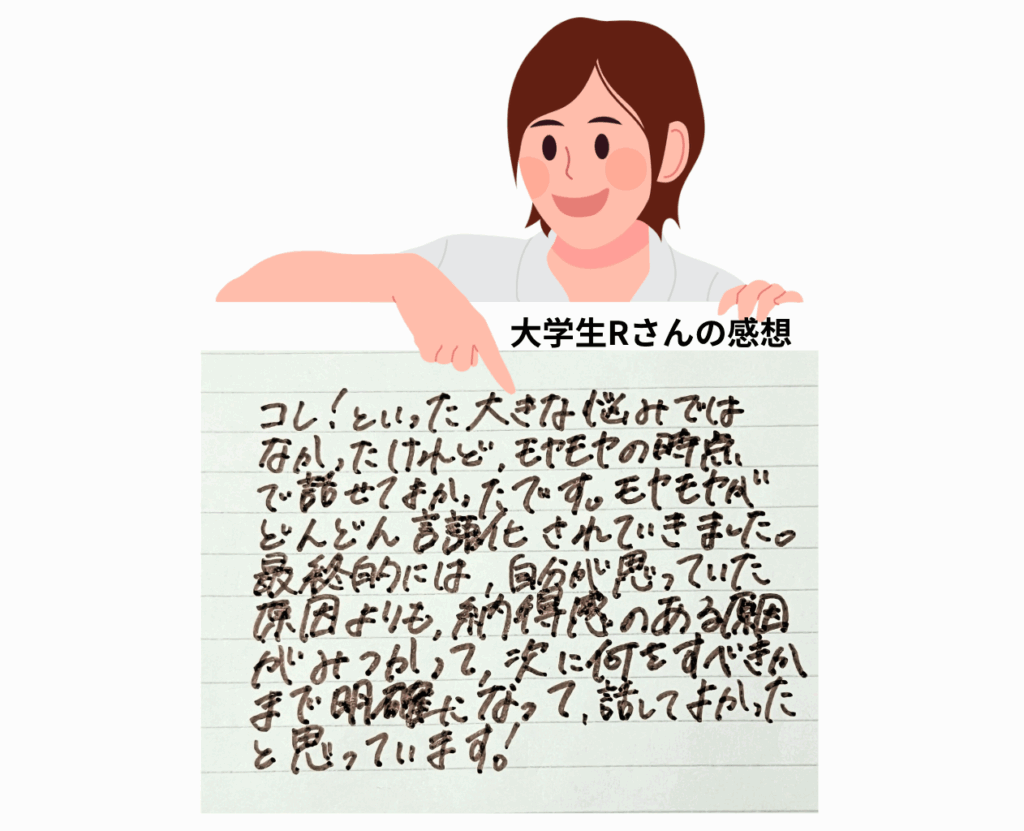 大学生Rさんの感想
コレ!といった大きな悩みでは
なかったけれど、モヤモヤの時点
で話せてよかったです。モヤモヤが
どんどん言語化されていきました。
最終的には、自分が思っていた
原因よりも、納得感のある原因
がみつかって、次に何をすべきか
まで明確になって、話してよかった
と思っています!